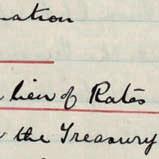 lieu of Rates
the Treasury